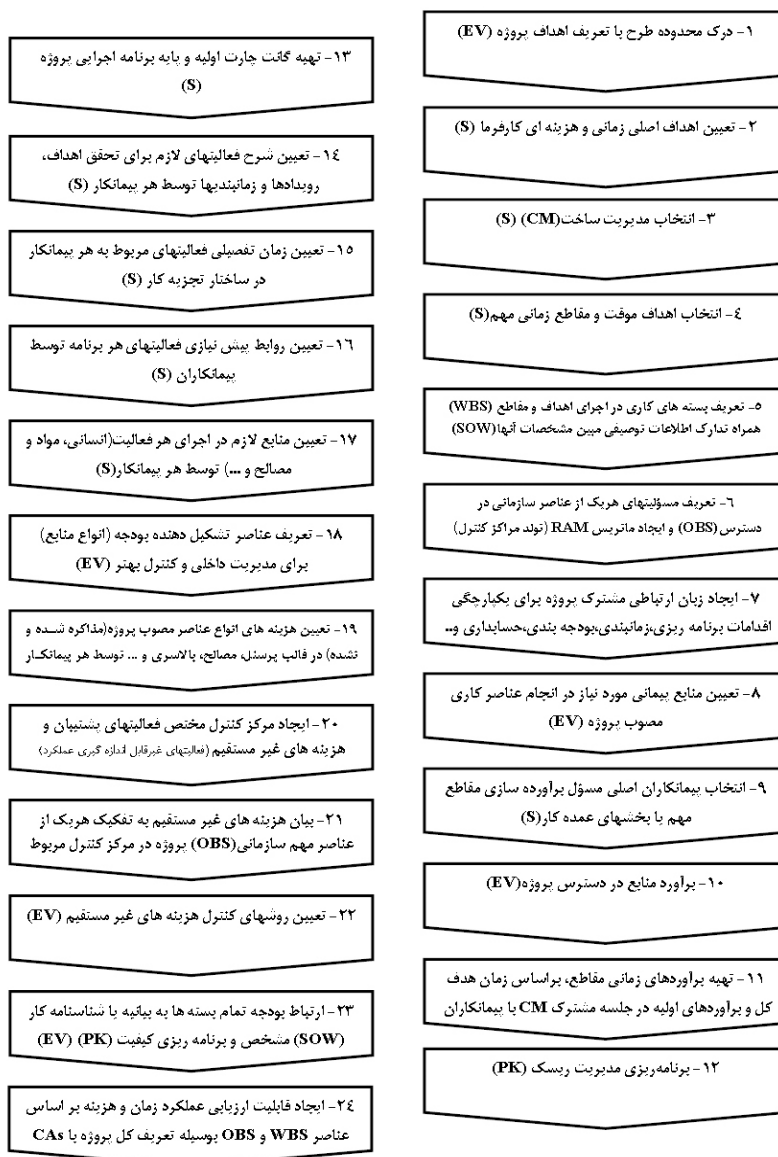 ۱- درک محدوده طرح با تعریف اهداف پروژه (EV)
۲- تعیین اهداف اصلی زمانی و هزینه ای کارفرما (S)
۳- انتخاب مدیریت ساخت(CM) (S)
٤- انتخاب اهداف موقت و مقاطع زمانی مهم(S)
٥- تعریف بسته های کاری در اجرای اهداف و مقاطع (WBS)
همراه تدارک اطلاعات توصیفی مبین مشخصات آنها(SOW)
٦- تعریف مسؤلیتهای هریک از عناصر سازمانی در
دسترس(OBS) و ایجاد ماتریس RAM (تولد مراکز کنترل)
۷- ایجاد زبان ارتباطی مشترک پروژه برای یکپارچگی
اقدامات برنامه ریزی،زمانبندی،بودجه بندی،حسابداری و..
۸- تعیین منابع پیمانی مورد نیاز در انجام عناصر کاری
مصوب پروژه (EV)
۹- انتخاب پیمانکاران اصلی مسؤل برآورده سازی مقاطع
مهم یا بخشهای عمده کار(S)
۱۰- برآورد منابع در دسترس پروژه(EV)
۱۱- تهیه برآوردهای زمانی مقاطع، براساس زمان هدف
کل و برآوردهای اولیه در جلسه مشترک CM با پیمانکاران
۱۲- برنامه‌ریزی مدیریت ریسک (PK)
۱۳- تهیه گانت چارت اولیه و پایه برنامه اجرایی پروژه
(S)
۱٤- تعیین شرح فعالیتهای لازم برای تحقق اهداف،
رویدادها و زمانبندیها توسط هر پیمانکار (S)
۱٥- تعیین زمان تفصیلی فعالیتهای مربوط به هر پیمانکار
در ساختار تجزیه کار (S)
۱٦- تعیین روابط پیش نیازی فعالیتهای هر برنامه توسط
پیمانکاران (S)
۱۷- تعیین منابع لازم در اجرای هر فعالیت(انسانی، مواد و
مصالح و ...) توسط هر پیمانکار(S)
۱۸- تعریف عناصر تشکیل دهنده بودجه (انواع منابع)
برای مدیریت داخلی و کنترل بهتر (EV)
۱۹- تعیین هزینه های انواع عناصر مصوب پروژه(مذاکره شده و
نشده) در قالب پرسنل، مصالح، بالاسری و ... توسط هر پیمانکار
۲۰- ایجاد مرکز کنترل مختص فعالیتهای پشتیبان و
هزینه های غیر مستقیم (فعالیتهای غیرقابل اندازه گیری عملکرد)
۲۱- بیان هزینه های غیر مستقیم به تفکیک هریک از
عناصر مهم سازمانی(OBS) پروژه در مرکز کنترل مربوط
۲۲- تعیین روشهای کنترل هزینه های غیر مستقیم (EV)
۲۳- ارتباط بودجه تمام بسته ها به بیانیه یا شناسنامه کار
(SOW) مشخص و برنامه ریزی کیفیت (PK) (EV)
۲٤- ایجاد قابلیت ارزیابی عملکرد زمان و هزینه بر اساس
عناصر WBS و OBS بوسیله تعریف کل پروژه با CAs